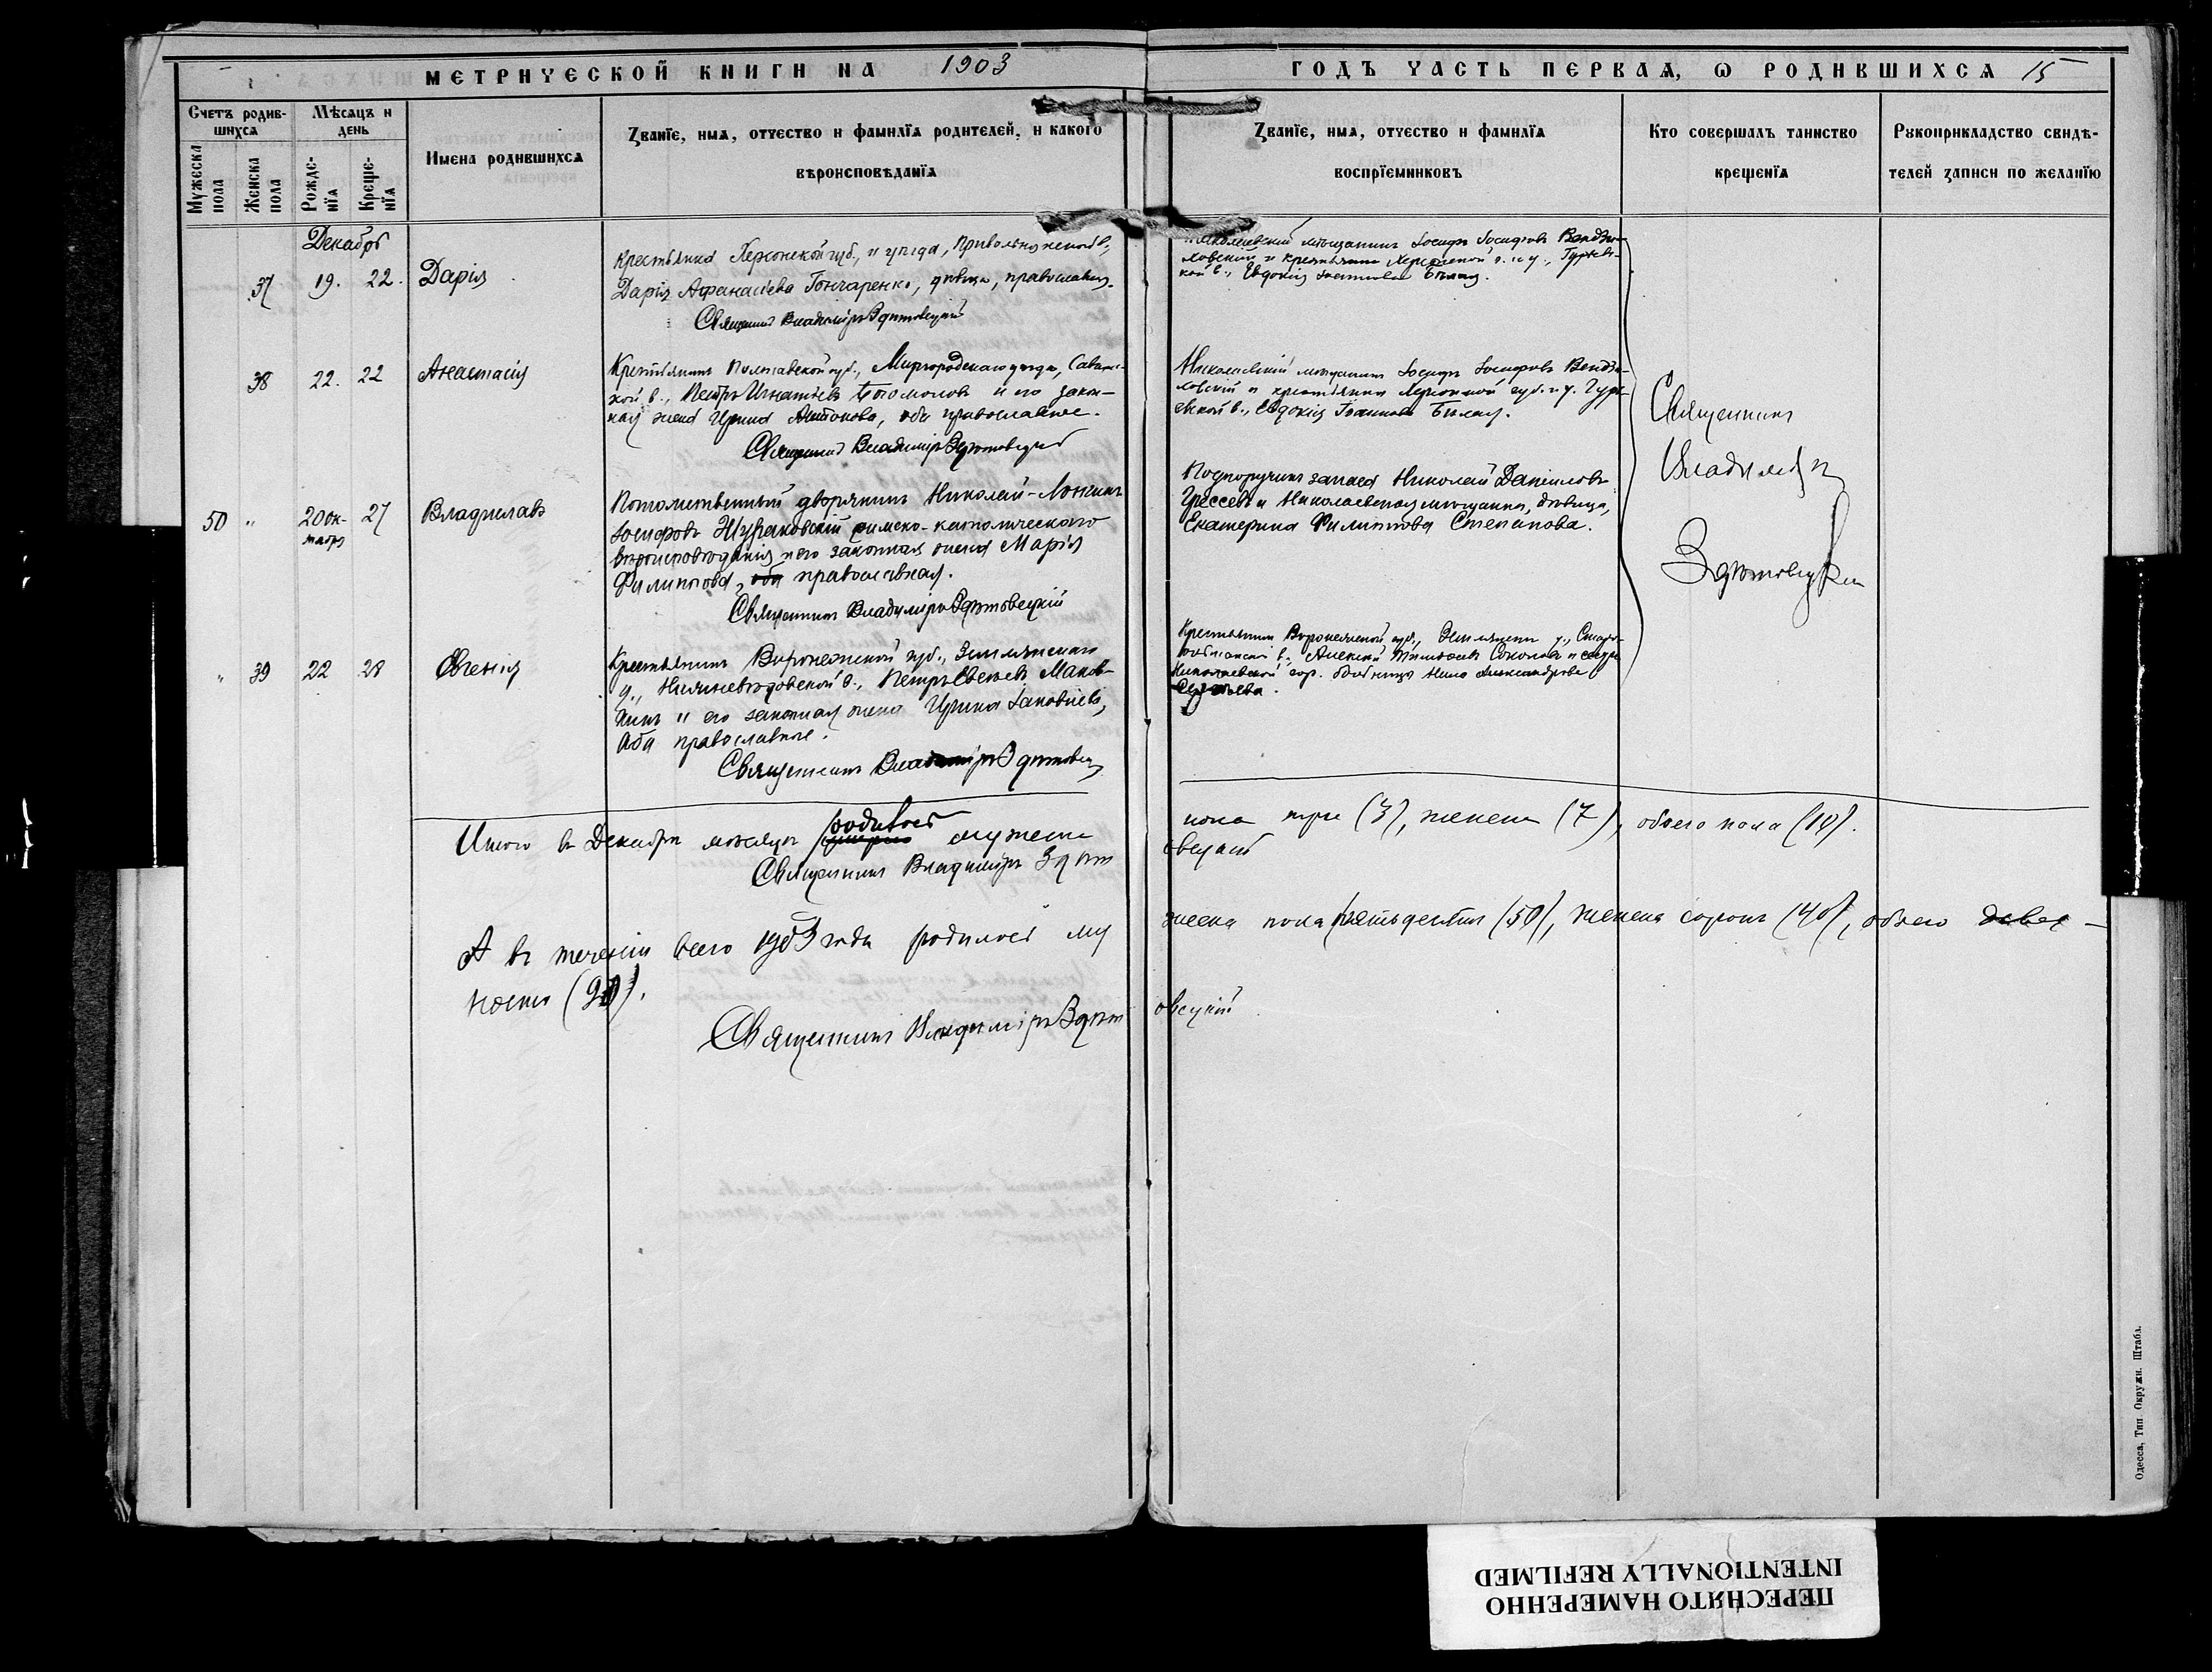 МЕТРИЧЕСКОЙ КНИГИ НА 1903
ГОДЪ ЧАСТЬ ПЕРВАЯ, Ѡ РОДИВШИХСЯ 15
Счетъ родив-
шихся
Мужеска пола
Женска пола
Мѣсяцъ и
день
Рожде-
нїя
Креще-
нїя
Имена родившихся
Званїе, имя, отчество и фамилїя родителей, и какого
вѣроисповѣданїя
Званїе, имя, отчество и фамилїя
воспрїемниковъ
Кто совершалъ таинство
крещенїя
Рукоприкладство свидѣ-
телей записи по желанїю
Декабрь
37 19. 22. Дарія
Крестьянка Херсонской губ., и уѣзда, Привольнянской в.,
Дарія Афанасіева Гончаренко, дѣвица, православная.
Священникъ Владиміръ Здѣтовецкій
Николаевскій мѣщанинъ Іосифъ Іосифовъ
и крестьянка Херсонской г. и у.,
кой в., Евдокія Бѣлая.
38 22. 22 Анастасія
Крестьянинъ Полтавской губ., Миргородскаго уѣзда,
кой в., Петръ Игнатіевъ Богомоловъ и его закон-
ная жена Ирина Антонова, оба православные.
Священникъ Владиміръ Здѣтовецкій
Николаевскій мѣщанинъ Іосифъ Іосифовъ
ловскій и крестьянка Херсонской губ. и у.
вской в., Евдокія Іоаннова Бѣлая.
Священникъ
Владиміръ
Здѣтовецкій
50 " 20 ок-
тября
27 Владиславъ
Потомственный дворянинъ Николай-
Іосифовъ Жураковскій римско-католическаго
вѣроисповѣданія и его законная жена Марія
Филиппова, оба православная.
Священникъ Владиміръ Здѣтовецкій
Подпоручикъ запаса Николай Даниловъ
Грессевъ и Николаевская мѣщанка, дѣвица,
Екатерина Филиппова Степанова.
" 39 22 28 Евгенія
Крестьянинъ Воронежской губ., Землянскаго
у., Нижневѣдовской в., Петръ
и его законная жена Ирина Іаковлева,
оба православные.
Священникъ Владиміръ Здѣтовецкій
Крестьянинъ Воронежской губ., Землянск. у.,
в., Алексій Соколовъ и
Николаевской гор. Анна Александрова
Итого въ Декабрѣ мѣсяцѣ родилось мужеска
пола три (3), женска (7), обоего пола (10).
Священникъ Владиміръ Здѣтовецкій
А въ теченіи всего 1903 года родилось му
жеска пола пятьдесятъ (50), женска сорокъ (40), обоего девя-
носто (90).
Священникъ Владиміръ Здѣтовецкій
Одесса, Тип. Окружн. Штаба.
ПЕРЕСНЯТО НАМЕРЕННО
INTENTIONALLY REFILMED